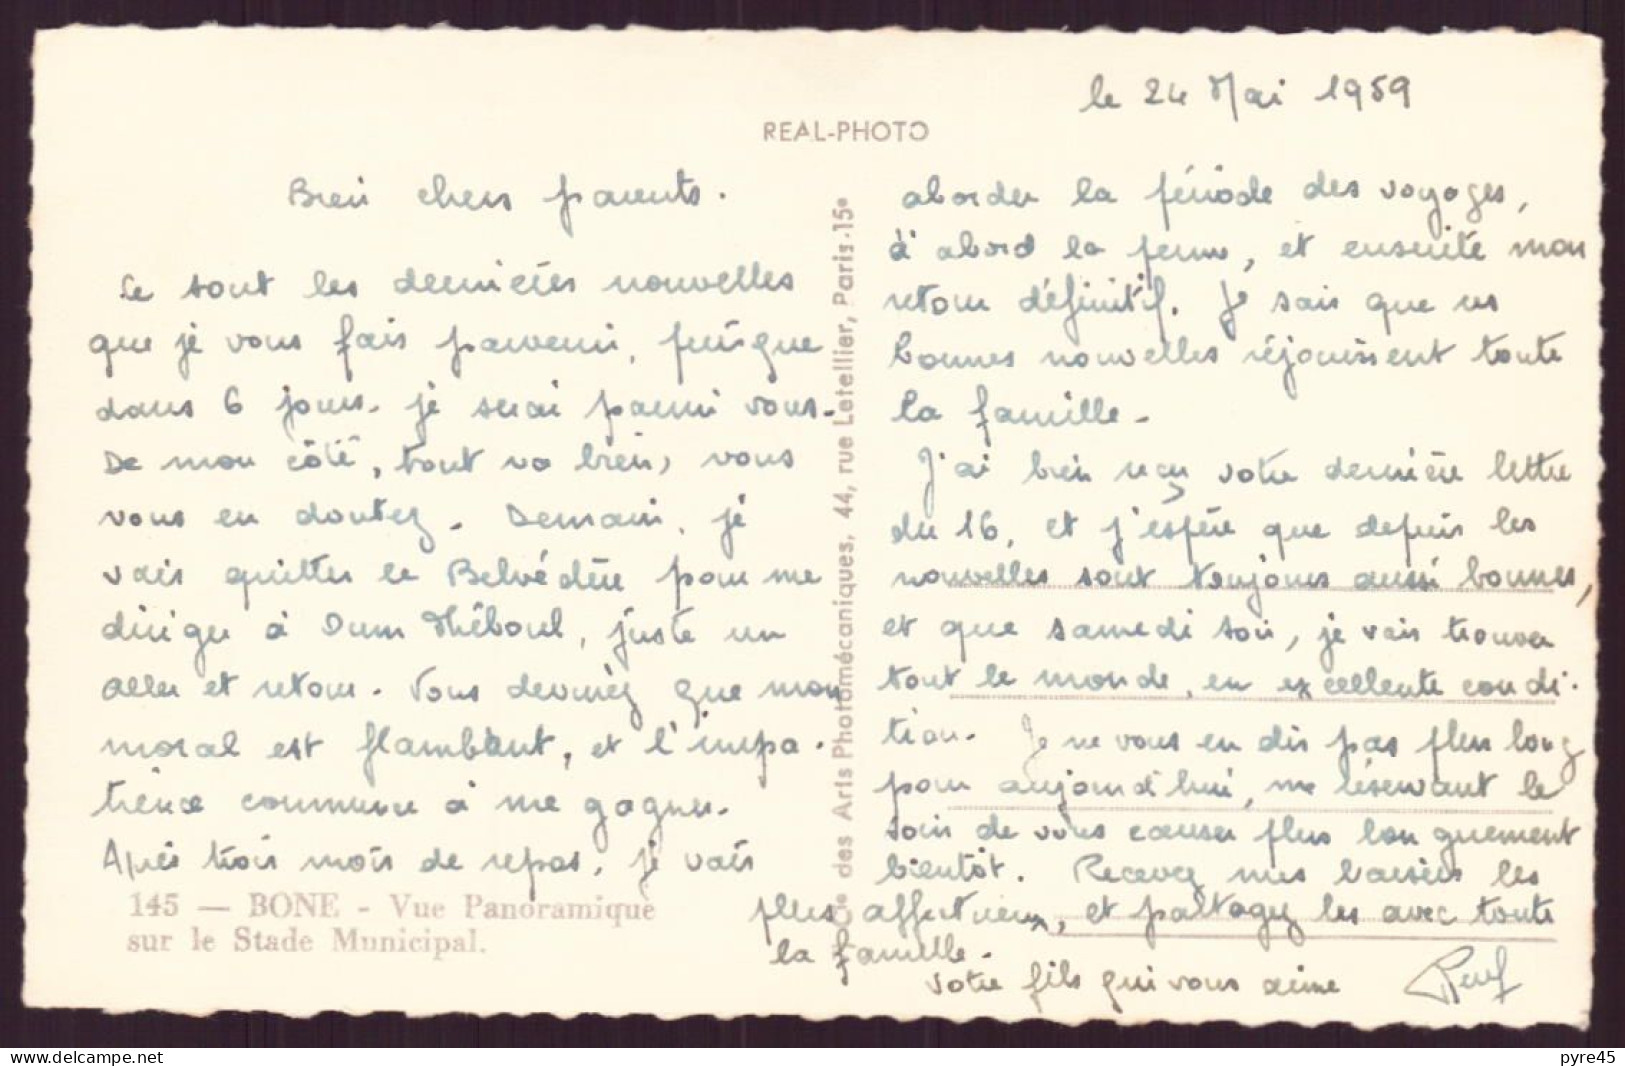 le 24 Mai 1959
REAL-PHOTO
Bien chers parents.
Ce sont les dernières nouvelles
que je vous fais parvenir, puisque
dans 6 jours, je serai parmi vous.
De mon côté, tout va bien, vous
vous en doutez. Demain, je
vais quitter le Belvédère pour me
diriger à Oum Théboul, juste un
aller et retour. Vous devinez que mon
moral est flambant, et l'impa-
tience commence à me gagner.
Après trois mois de repos, je vais
aborder la période des voyages,
d'abord la perm, et ensuite mon
retour définitif. Je sais que ces
bonnes nouvelles réjouissent toute
la famille.
J'ai bien reçu votre dernière lettre
du 16, et j'espère que depuis les
nouvelles sont toujours aussi bonnes,
et que samedi soir, je vais trouver
tout le monde, en excellente condi-
tion. Je ne vous en dis pas plus long
pour aujourd'hui, me réservant le
soin de vous causer plus longuement
bientôt. Recevez mes baisers les
plus affectueux, et partagez les avec toute
la famille.
Votre fils qui vous aime
145 — BONE - Vue Panoramique
sur le Stade Municipal.
des Arts Photomécaniques, 44, rue Letellier, Paris-15e
www.delcampe.net
pyre45